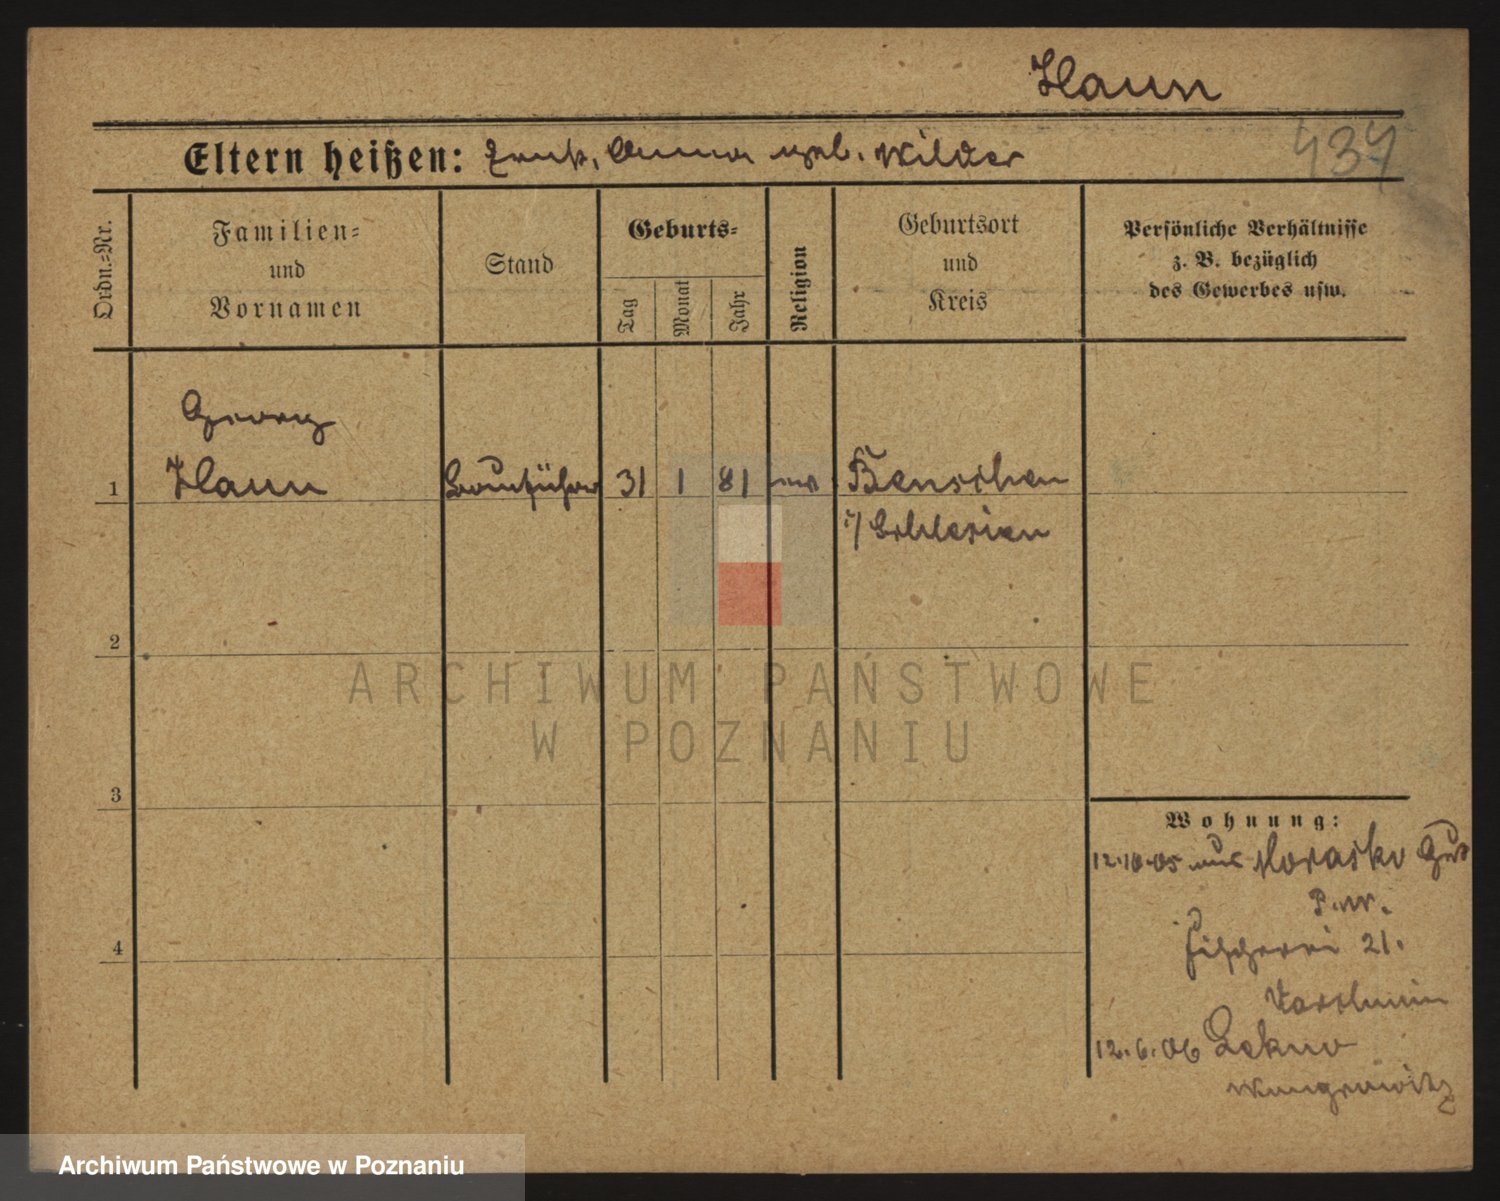 Haun
437
Eltern heißen: Ernst, Anna geb. Wilder
Ordn.-Nr.
Familien-
und
Vornamen
Stand
Geburts-
Tag
Monat
Jahr
Religion
Geburtsort
und
Kreis
Persönliche Verhältnisse
z. B. bezüglich
des Gewerbes usw.
Georg
1 Haun Bauführer 31 1 81 Benschen
i/ Schlesien
2
3
4
Wohnung:
12.10.05 aus Morasko Gut
P.W.
Fischerei 21.
12.6.06 Lekno
Wongrowitz
ARCHIWUM PAŃSTWOWE
W POZNANIU
Archiwum Państwowe w Poznaniu